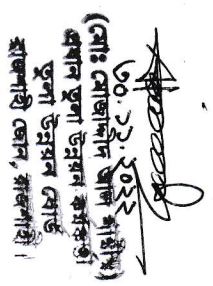 ৩০.১১.২০২২
(মোঃ মোজাম্মেল
প্রধান তুলা উন্নয়ন কর্মকর্তা
তুলা উন্নয়ন বোর্ড
রাজশাহী জোন, রাজশাহী।